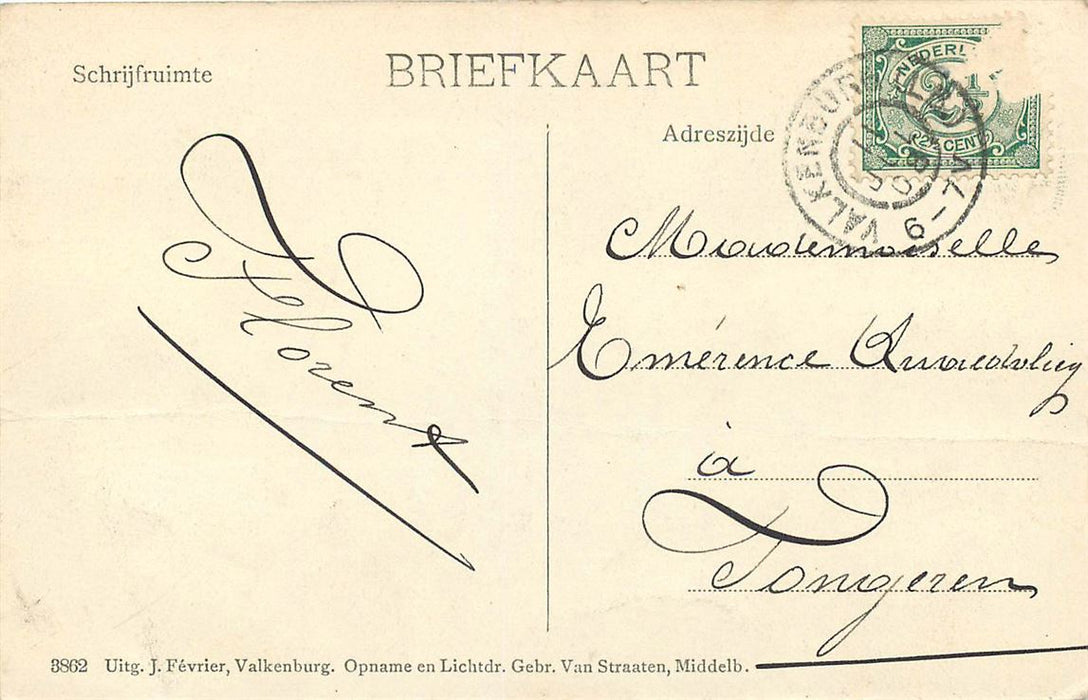 Schrijfruimte
BRIEFKAART
Adreszijde
NEDERL
2½
2½ CENT
VALKENBURG
6-7V
Florent
Mademoiselle
Emérence Quaedvlieg
à
Tongeren
3862 Uitg. J. Février, Valkenburg. Opname en Lichtdr. Gebr. Van Straaten, Middelb.